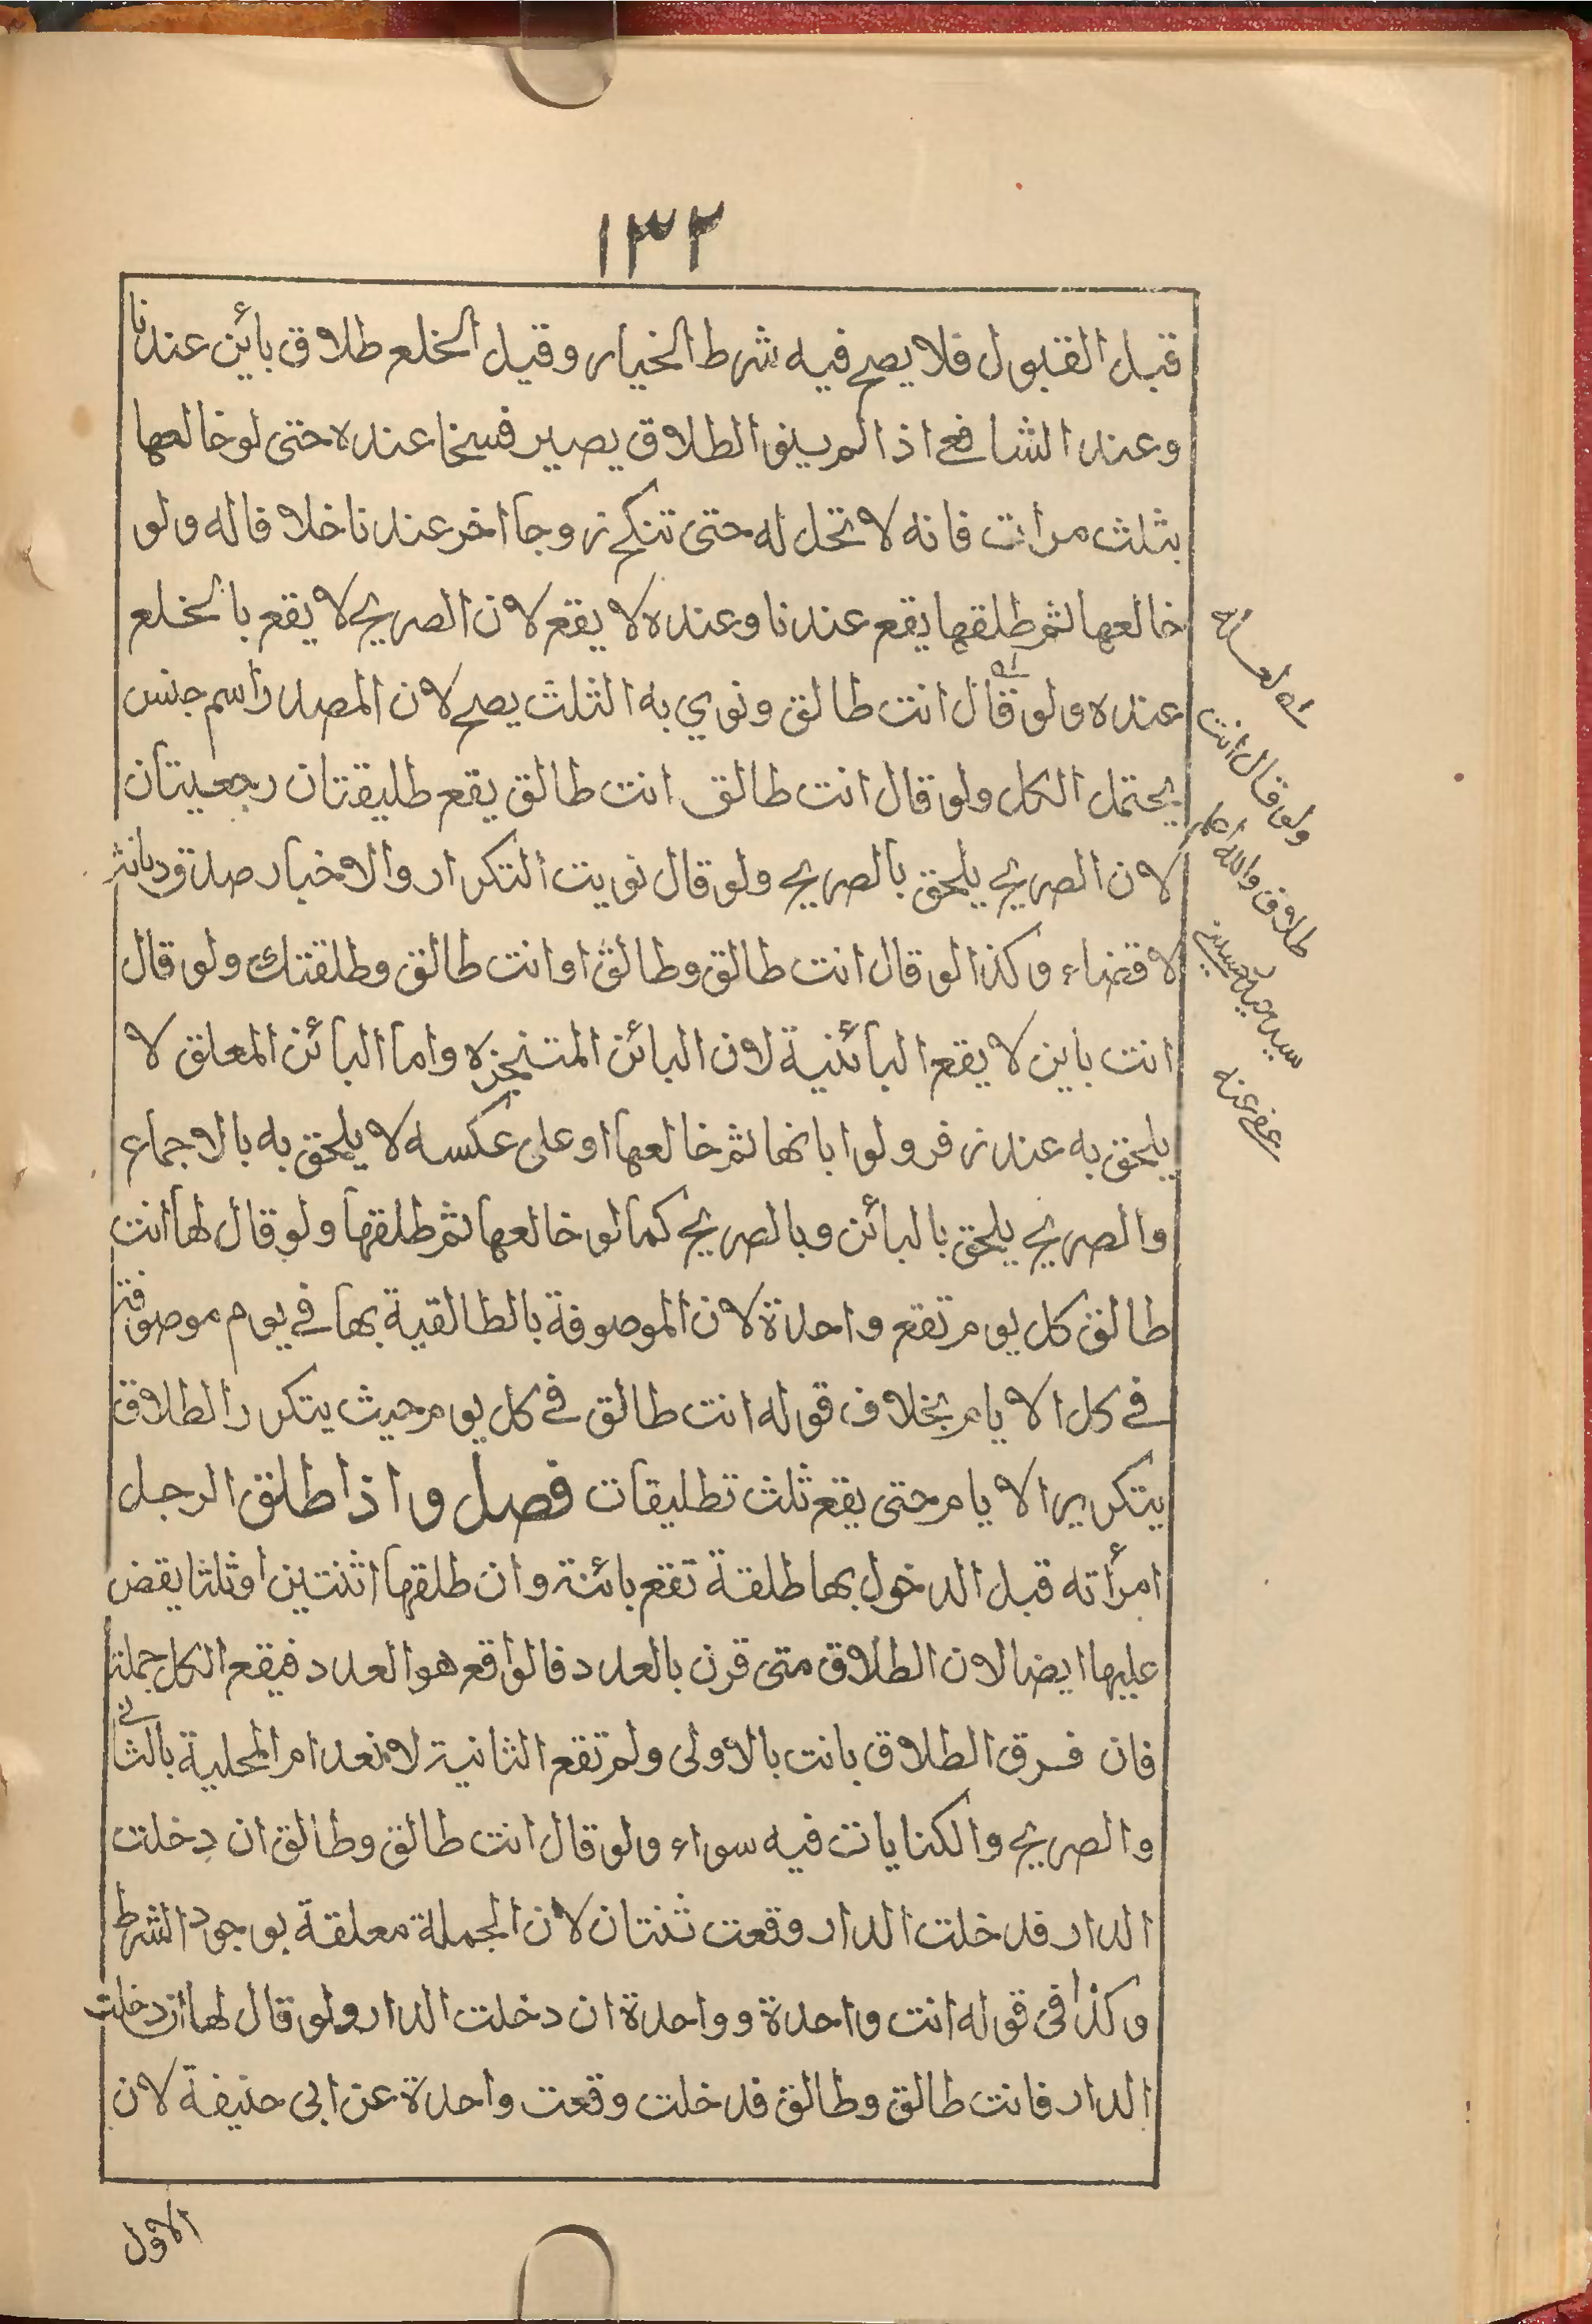 ١٣٢
قبل القبول فلا يصح فيه شرط الخيار وقيل الخلع طلاق بائن عندنا
وعند الشافعے اذا لم ينو الطلاق يصير فسخا عنده حتى لو خالعها
بثلث مرات فانه لا تحل له حتى تنكح زوجا اخر عندنا خلافا له ولو
خالعها ثم طلقها يقع عندنا وعنده لا يقع لان الصريح لا يقع بالخلع
عنده ولو قال انت طالق ونوي به الثلث يصح لان المصدر اسم جنس
يحتمل الكل ولو قال انت طالق انت طالق يقع طليقتان رجعيتان
لان الصريح يلحق بالصريح ولو قال نويت التكرار والاخبار صدق ديانة
لا قضاء وكذا لو قال انت طالق وطالق او انت طالق وطلقتك ولو قال
انت باين لا يقع البائنية لان البائن المتنجزه واما البائن المعلق لا
يلحق به عند زفر ولو ابانها ثم خالعها او على عكسه لا يلحق به بالاجماع
والصريح يلحق بالبائن وبالصريح كما لو خالعها ثم طلقها ولو قال لها انت
طالق كل يوم تقع واحدة لان الموصوفة بالطالقية بها في يوم موصوفة
في كل الايام بخلاف قوله انت طالق في كل يوم حيث يتكرر الطلاق
يتكرير الايام حتى يقع ثلث تطليقات فصل واذا طلق الرجل
امرأته قبل الدخول بها طلقة تقع بائنة وان طلقها اثنتين او ثلثا يقض
عليها ايضا لان الطلاق متى قرن بالعدد فالواقع هو العدد فيقع الكل جملة
فان فرق الطلاق بانت بالأولى ولم تقع الثانية لانعدام المحلية بالثانے
والصريح والكنايات فيه سواء ولو قال انت طالق وطالق ان دخلت
الدار فدخلت الدار وقعت ثنتان لان الجملة معلقة بوجود الشرط
وكذا في قوله انت واحدة وواحدة ان دخلت الدار ولو قال لها ان دخلت
الدار فانت طالق وطالق فدخلت وقعت واحدة عن ابى حنيفة لان
الاول
ولو قال انت
طلاق والله اعلم
سيد
عفى عنه